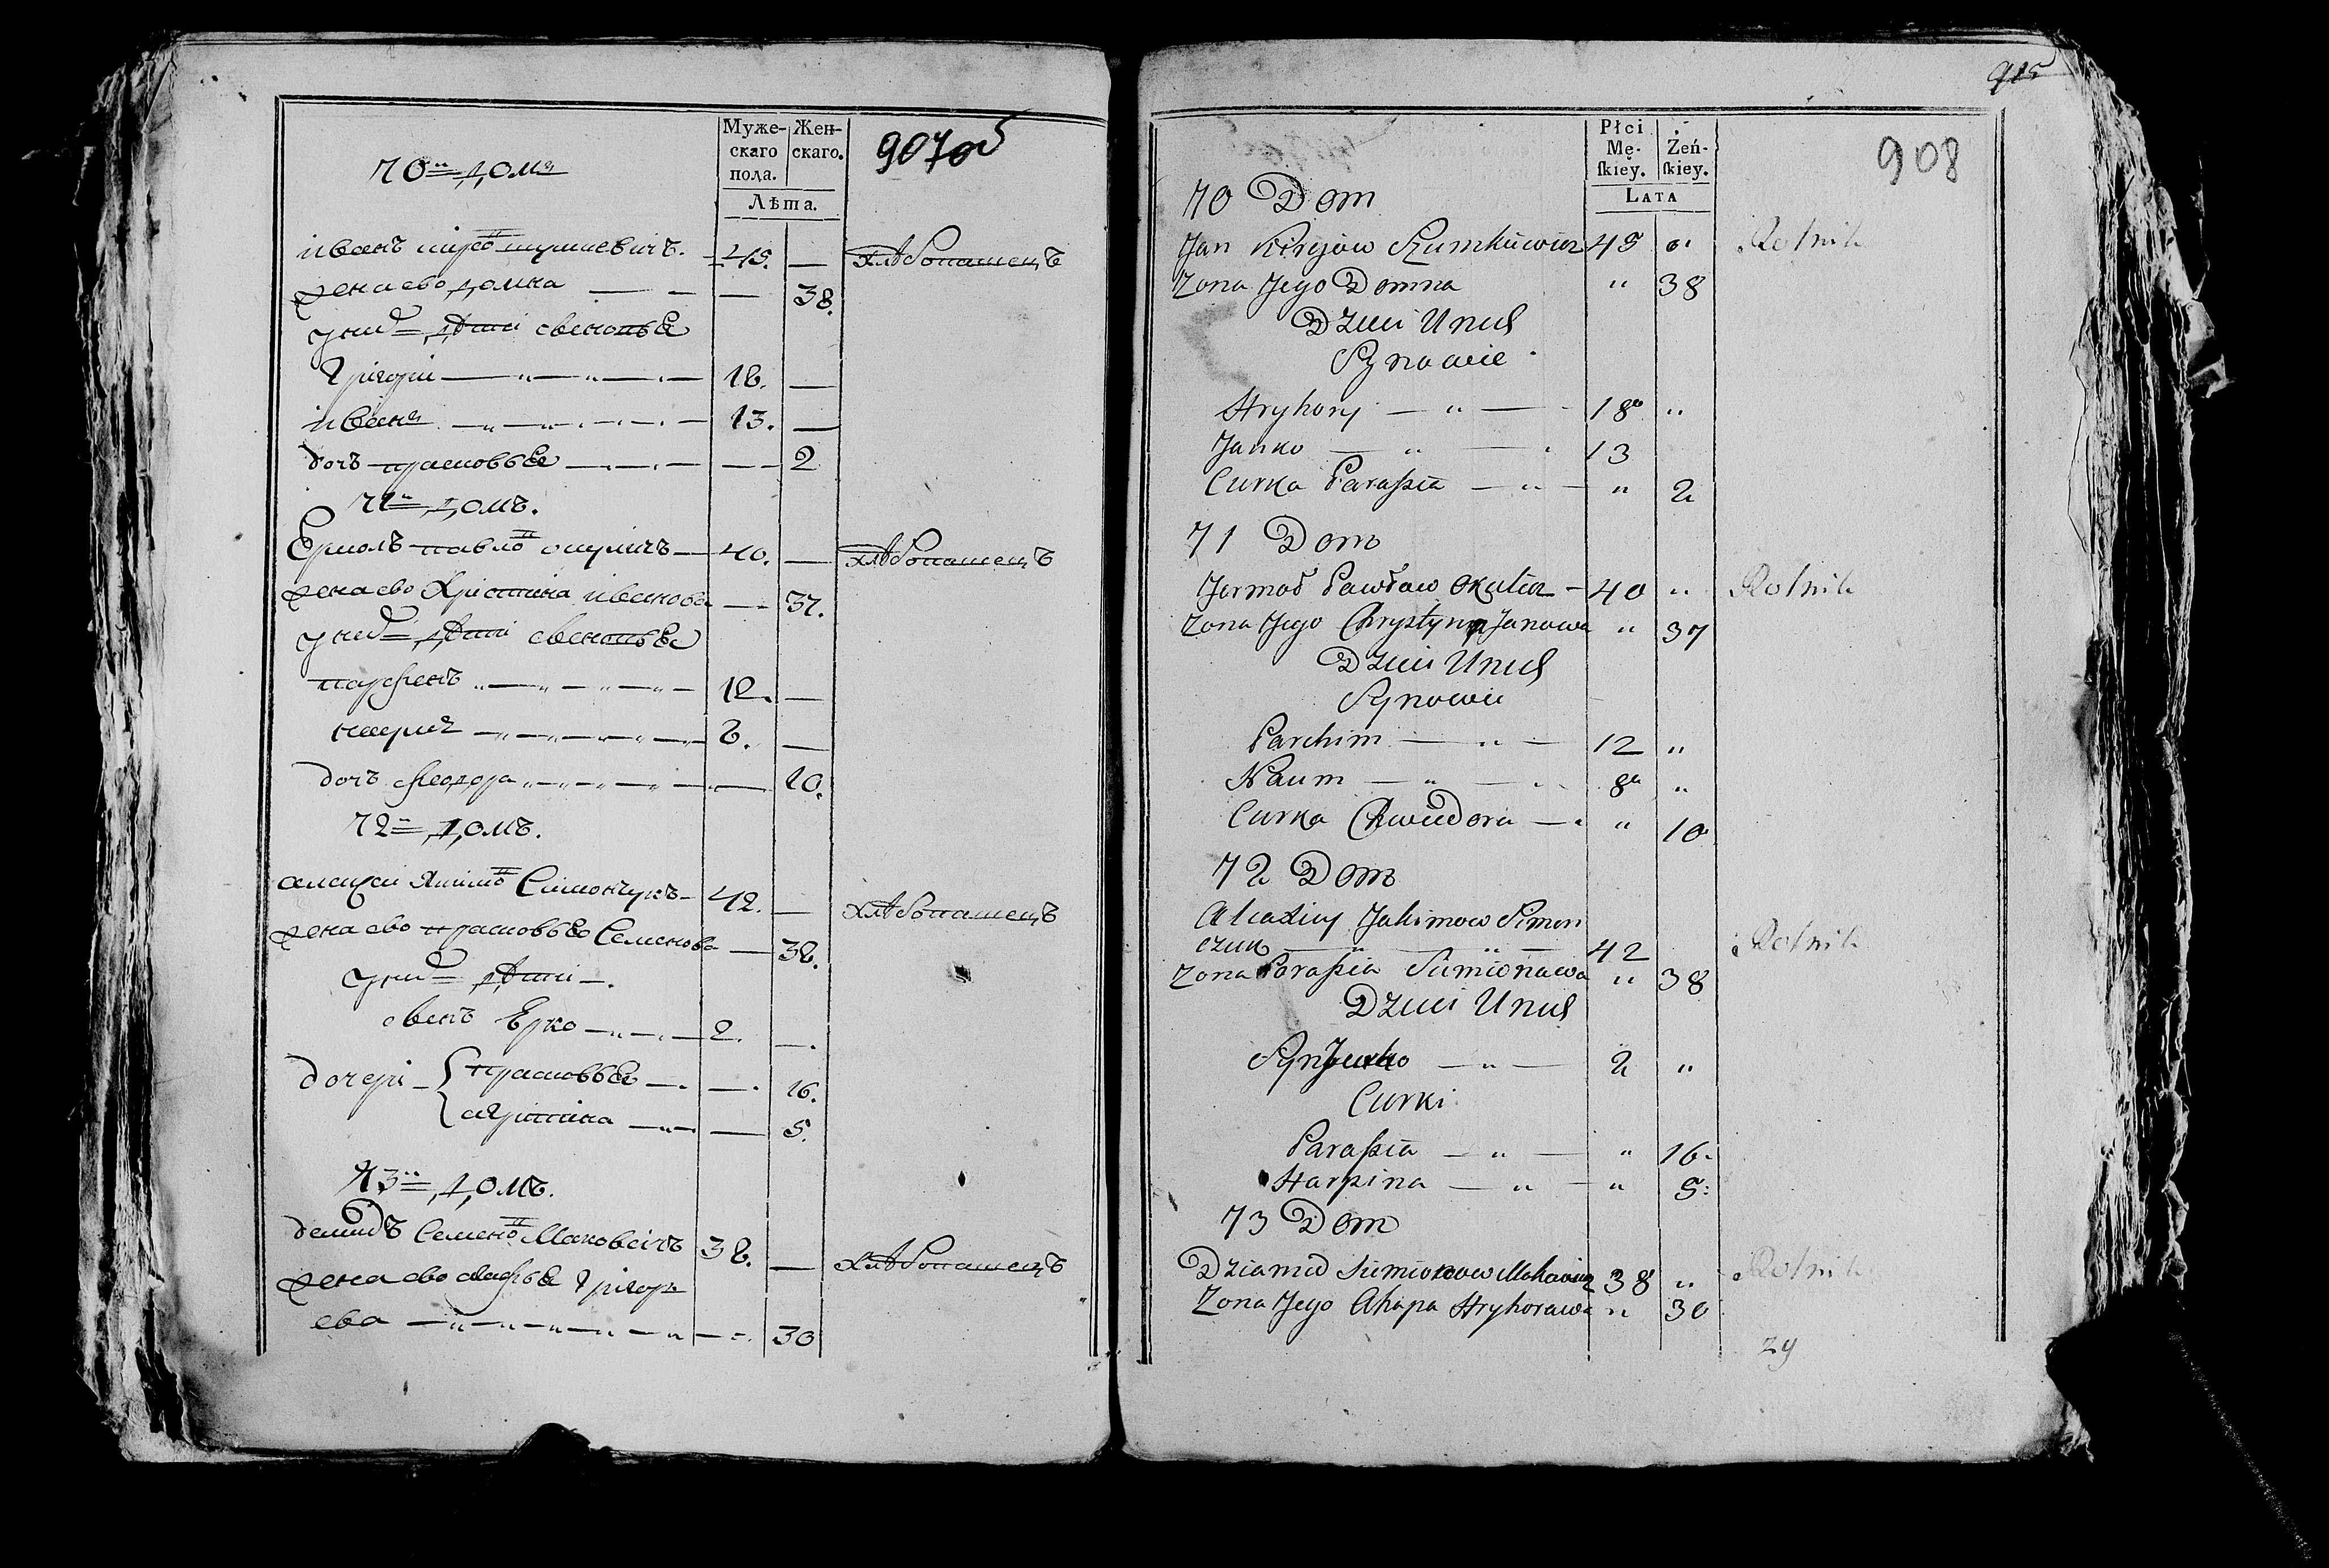 Муже-
скаго
пола.
Жен-
скаго.
Лѣта.
907об
70й домъ
иванъ киреѡ шумкевичъ. 45. —
хлѣбопашецъ
жена ево домна — — — 38.
у нихъ дѣти сыновья
Григори — " — " — 18. —
иванъ — " — " — 13. —
дочъ прасковья — — 2
71й домъ.
Ермолъ павлоѡ окуличъ — 40. —
хлѣбопашецъ
жена ево Христина иванова — 37.
у нихъ дѣти сыновья
парфенъ " — " — " — 12. —
наумъ — " — " — 8. —
дочъ федора " — " — " — 10.
72й домъ.
алексеи Якимо Симончукъ — 42. —
хлѣбопашецъ
жена ево прасковья Семенова — 38.
у нихъ дѣти —.
сынъ Юрко — " — 2. —.
дочери — { прасковья — . — . 16.
агрипина — " — — 5.
73й домъ.
демидъ Семено Маковеичъ 38. —
хлѣбопашецъ
жена ево агафья Григорь
ева — " — " — " — 30
Płci
Mę-
ſkiey.
Żeń-
ſkiey.
Lata
908
70 Dom
Jan Kirejow Szumkiewicz 45 "
Rolnik
Zona Jego Domna " 38
Dzieci Unich
Synowie
Hryhory — " — 18 "
Janko — " — 13
Curka Paraszia — " — " 2
71 Dom
Jermoł Pawłow Okulicz — 40 "
Rolnik
Zona Jego Chrystyna Janowa " 37
Dzieci Unich
Synowie
Parchim — " — 12 "
Naum — " — 8 "
Curka Chwiedora — " 10
72 Dom
Alexiey Jakimow Simon
czuk — " — " — 42
Rolnik
Zona Paraszia Siemionawa " 38
Dzieci Unich
Syn Jurko — " — 2 "
Curki
Paraszia — " — " 16
Harpina — " — " 5:
73 Dom
Dziamid Siemionow Makowicz 38 "
Rolnik
Zona Jego Ahapa Hryhorawa " 30